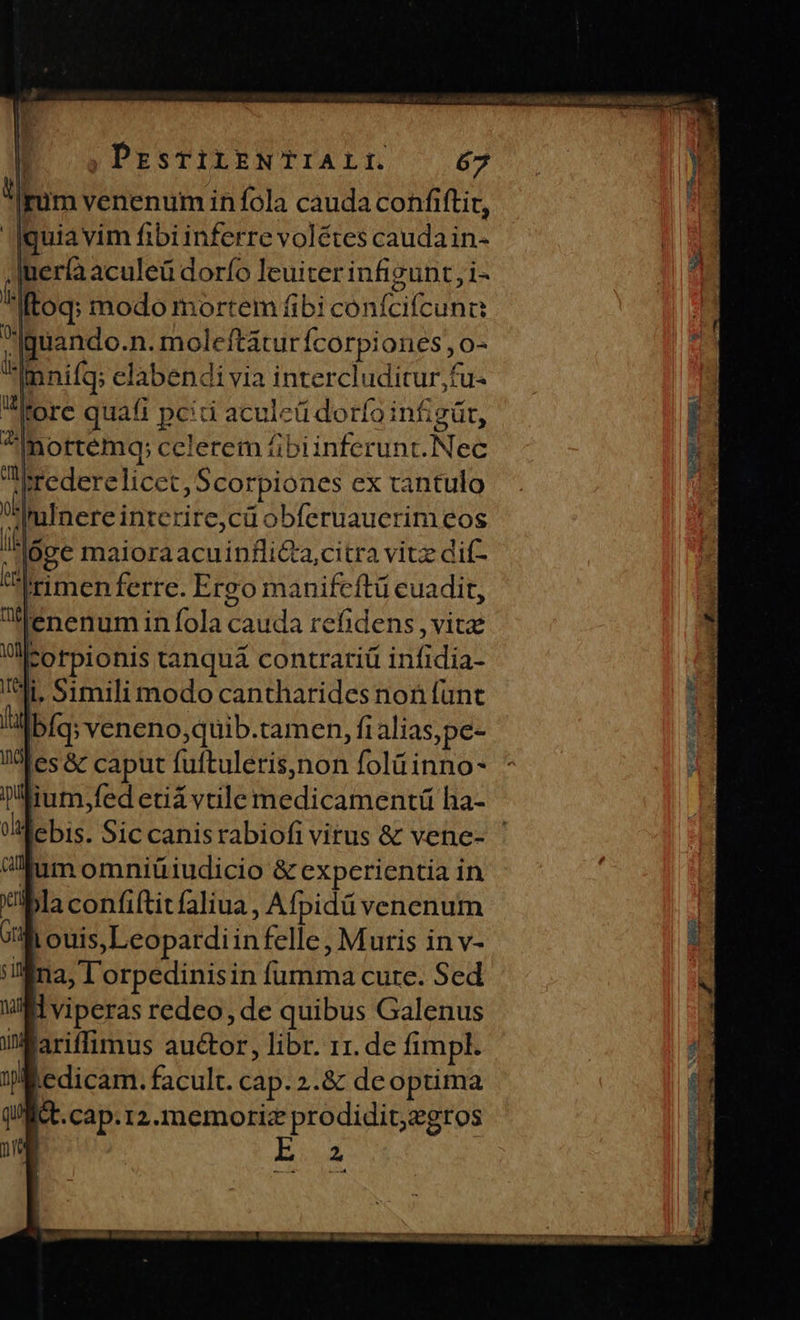 PESTILENTIALI. 67
rum venenum in ſola cauda conſiſtit,
quia vim ſibi inferre volẽtes cauda in-
uerſa aculeũ dorſo leuiter infigunt, i-
ſtoq; modo mortem ſibi conſciſcunt:
quando.n. moleſtãtur ſcorpiones, o-
mniſq; elabendi via intercluditur, fu-
rore quaſi pciti aculeũ dorſo infigũt,
mortemq; celerem ſibi inferunt. Nec
credere licet, Scorpiones ex tantulo
vulnere interire, cũ obſeruauerim eos
lõge maiora acu inflicta, citra vitæ diſ-
crimen ferre. Ergo manifeſtũ euadit,
venenum in ſola cauda reſidens, vitæ
ſcorpionis tanquã contrariũ inſidia-
ri. Simili modo cantharides non ſunt
abſq; veneno, quib. tamen, ſi alias, pe-
des & caput ſuſtuleris, non ſolũ inno-
xium, ſed etiã vtile medicamentũ ha-
bebis. Sic canis rabioſi virus & vene-
num omniũ iudicio & experientia in
ſola conſiſtit ſaliua, Aſpidũ venenum
ouis, Leopardi in felle, Muris in v-
rina, Torpedinis in ſumma cute. Sed
ad viperas redeo, de quibus Galenus
clariſſimus auctor, libr. 11. de ſimpl.
medicam. facult. cap. 2. & de optima
ſect. cap. 12. memoriæ prodidit, ægros
E 2